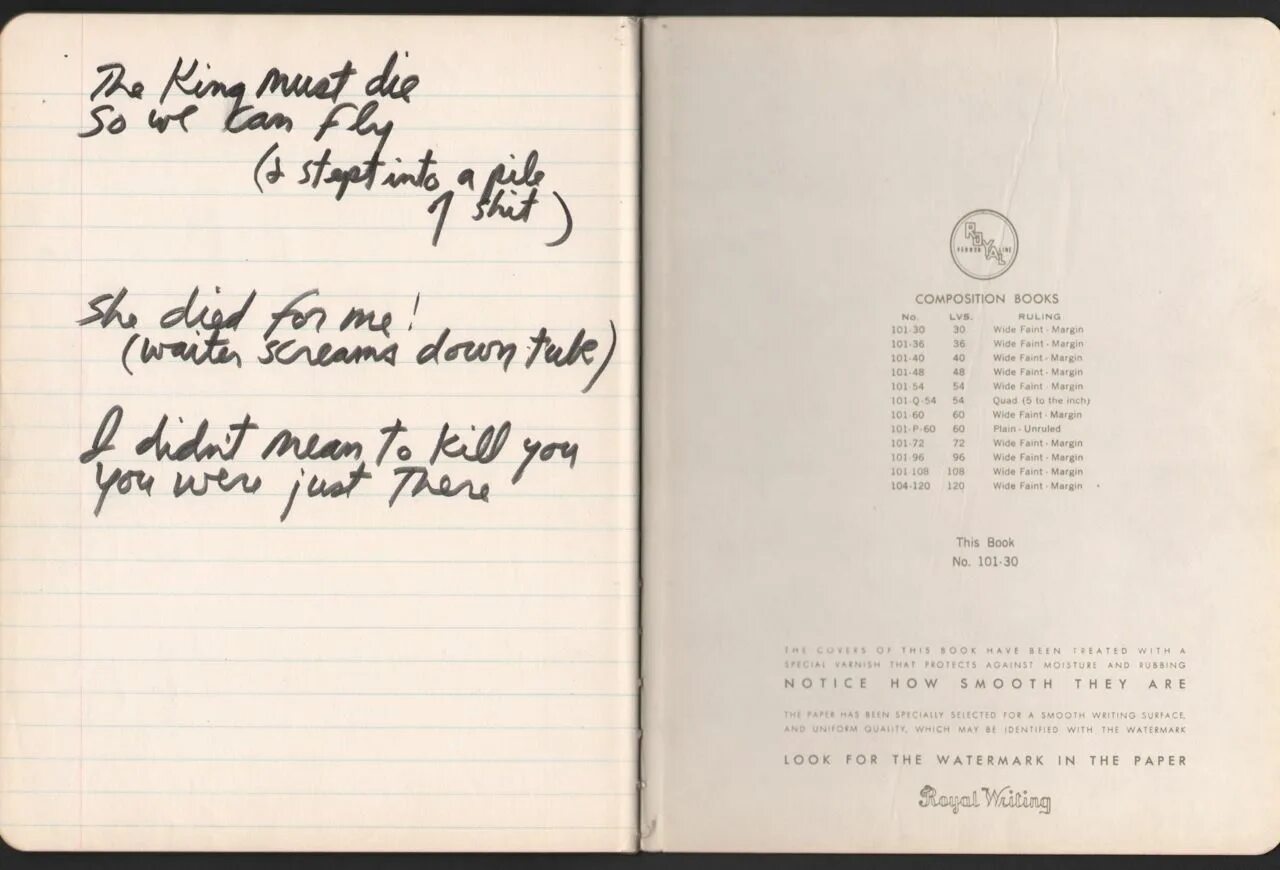 The King must die
So we can fly
(& stept into a pile
of shit)
She died for me!
(waiter screams down tube)
I didn't mean to kill you
You were just There
ROYAL
VERNON LINE
COMPOSITION BOOKS
No. LVS. RULING
101-30 30 Wide Faint - Margin
101-36 36 Wide Faint - Margin
101-40 40 Wide Faint - Margin
101-48 48 Wide Faint - Margin
101-54 54 Wide Faint - Margin
101-Q-54 54 Quad (5 to the inch)
101-60 60 Wide Faint - Margin
101-P-60 60 Plain - Unruled
101-72 72 Wide Faint - Margin
101-96 96 Wide Faint - Margin
101-108 108 Wide Faint - Margin
104-120 120 Wide Faint - Margin
This Book
No. 101-30
THE COVERS OF THIS BOOK HAVE BEEN TREATED WITH A
SPECIAL VARNISH THAT PROTECTS AGAINST MOISTURE AND RUBBING
NOTICE HOW SMOOTH THEY ARE
THE PAPER HAS BEEN SPECIALLY SELECTED FOR A SMOOTH WRITING SURFACE,
AND UNIFORM QUALITY, WHICH MAY BE IDENTIFIED WITH THE WATERMARK
LOOK FOR THE WATERMARK IN THE PAPER
Royal Writing